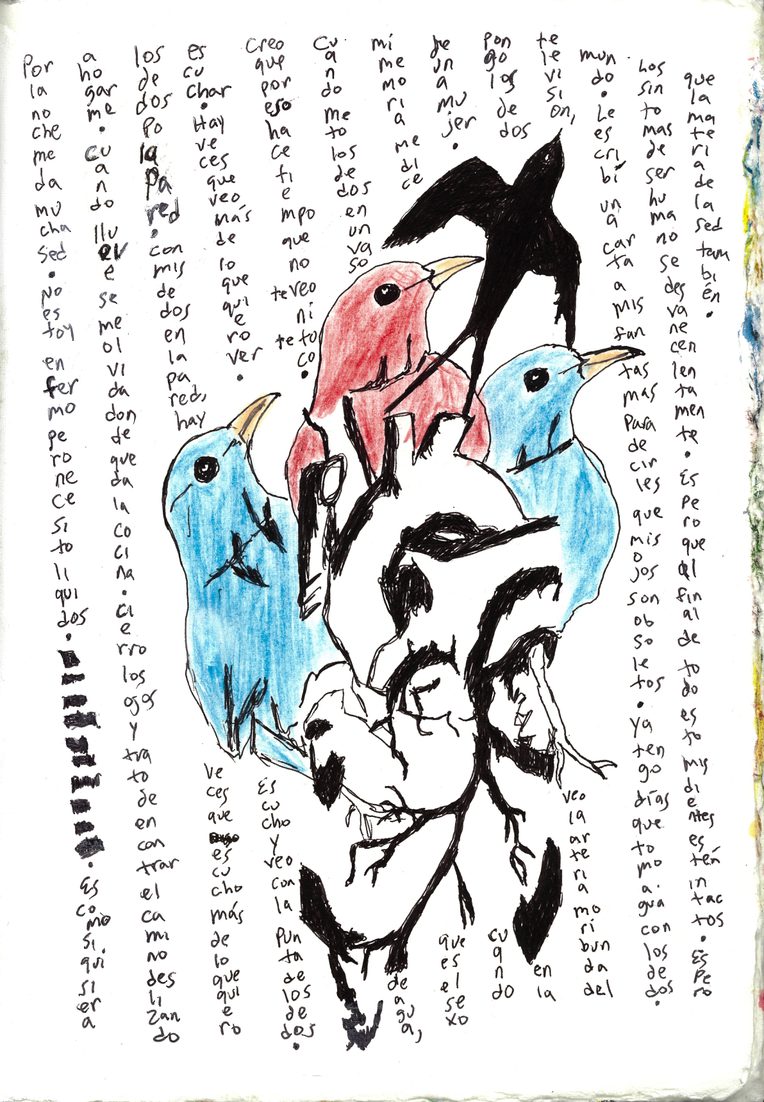 Por la noche me da mucha sed. No estoy enfermo pero necesito liquidos. Es como si quisiera
ahogarme. cuando llueve se me olvida donde queda la cocina. cierro los ojos y trato de encontrar el camino deslizando
los dedos po la pared. con mis dedos en la pared, hay
veces que escucho más de lo que quiero
escuchar. Hay veces que veo más de lo que quiero ver.
Escucho y veo con la punta de los dedos.
Creo que por eso hace tiempo que no te veo ni te toco.
Cuando meto los dedos en un vaso
de agua,
mi memoria me dice
que es el sexo
de una mujer.
cuando
pongo los dedos
en la
television,
veo la arteria moribunda del
mundo. Le escribí una carta a mis fantasmas para decirles que mis ojos son obsoletos. ya tengo días que tomo agua con los dedos.
Los sintomas de ser humano se desvanecen lentamente. Espero que al final de todo esto mis dientes estén intactos. Espero
que la materia de la sed también.